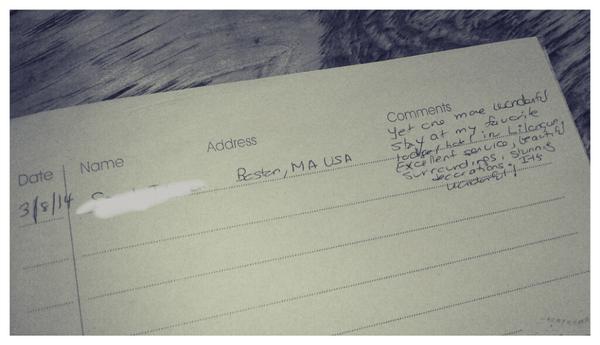 Date Name Address Comments
3/8/14 Boston, MA USA
Yet one more wonderful
stay at my favorite
hotel in Lilongwe.
Excellent service, beautiful
surroundings, stunning
decorations. It's
wonderful!